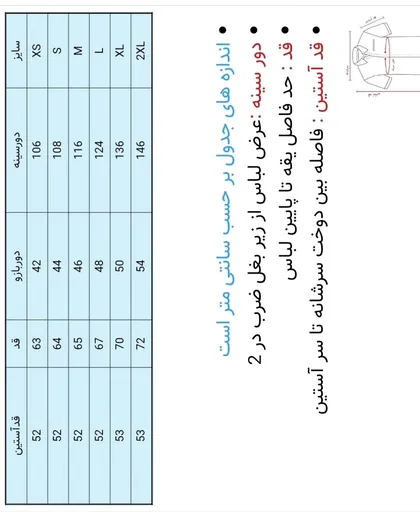 سایز دورسینه دوربازو قد قدآستین
XS 106 42 63 52
S 108 44 64 52
M 116 46 65 52
L 124 48 67 52
XL 136 50 70 53
2XL 146 54 72 53
• اندازه های جدول بر حسب سانتی متر است
• دور سینه :عرض لباس از زیر بغل ضرب در 2
• قد : حد فاصل یقه تا پایین لباس
• قد آستین : فاصله بین دوخت سرشانه تا سر آستین